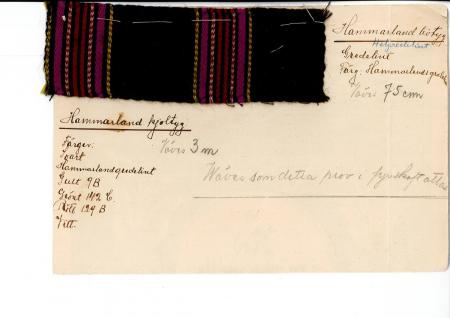 Hammarland livtyg
Helgredelint
Gredelint
Färg: Hammarlandsgredel
Väves 75 cm
Hammarland kjoltyg
Färger:
Svart
Hammarlandsgredelint
Gult 9 B
Grönt 1412 C.
Rött 129 B
Vitt.
Väves 3 m
Väves som detta prov i fyrskaft atlas